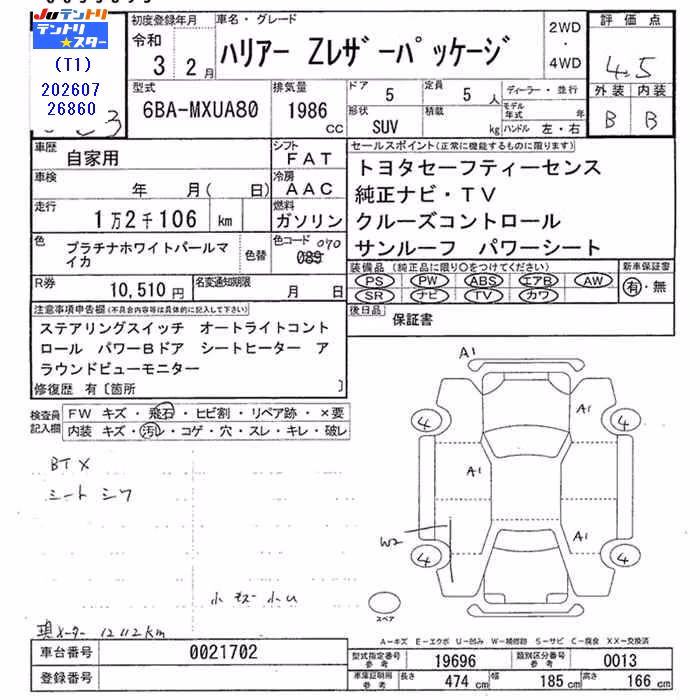 JU テントリ
テントリ
★スター
(T1)
202607
26860
初度登録年月
令和
3 2月
車名・グレード
ハリアー Zレザーパッケージ
2WD
・
4WD
評価点
4.5
外装 内装
B B
型式
6BA-MXUA80
排気量
1986
CC
ドア
5
定員
5 人
形状
SUV
積載
kg
ディーラー・並行
モデル年式 年
ハンドル 左・右
車歴
自家用
シフト
FAT
車検
年 月( 日)
冷房
AAC
走行
1万2千106 km
燃料
ガソリン
色
プラチナホワイトパールマイカ
色替
色コード 070
089
R券
10,510円
名変通知期限
月 日
セールスポイント(正常に機能するものに限ります)
トヨタセーフティーセンス
純正ナビ・TV
クルーズコントロール
サンルーフ パワーシート
装備品(純正品に限り○をつけてください)
PS PW ABS エアB AW
SR ナビ TV カワ
新車保証書
有・無
後日品
保証書
注意事項申告欄(不具合内容は具体的に記入して下さい)
ステアリングスイッチ オートライトコント
ロール パワーBドア シートヒーター ア
ラウンドビューモニター
修復歴 有〔箇所 〕
検査員記入欄
FW キズ・飛石・ヒビ割・リペア跡・×要
内装 キズ・汚レ・コゲ・穴・スレ・キレ・破レ
BT X
シート シワ
現メーター 12112km
A1
A1
A1
A1
W2
4
4
4
4
スペア
A-キズ E-エクボ U-凹み W-補修跡 S-サビ C-腐食 XX-交換済
車台番号
0021702
登録番号
型式指定番号
参考
19696
類別区分番号
参考
0013
車庫証明用
参考
長さ
474 cm
幅
185 cm
高さ
166 cm